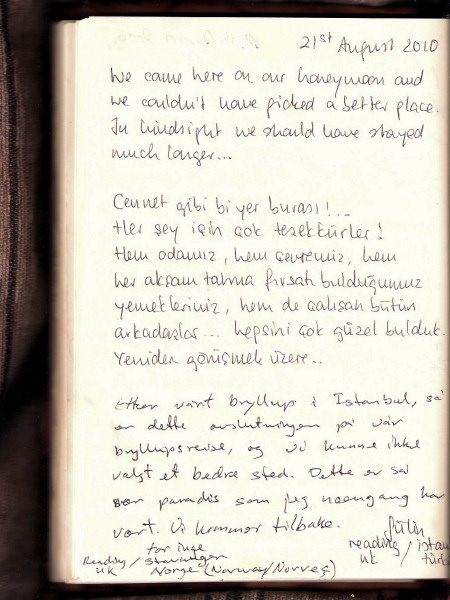 21st August 2010
We came here on our honeymoon and
we couldn't have picked a better place.
In hindsight we should have stayed
much longer...
Cennet gibi bi yer burası!...
Her şey için çok teşekkürler!
Hem odamız, hem çevremiz, hem
her akşam tatma fırsatı bulduğumuz
yemekleriniz, hem de çalışan bütün
arkadaşlar... hepsini çok güzel bulduk.
Yeniden görüşmek üzere..
Etter vårt bryllup i Istanbul, så
er dette avslutningen på vår
bryllupsreise, og vi kunne ikke
valgt et bedre sted. Dette er så
nær paradis som jeg noengang har
vært. Vi kommer tilbake.
Tor Inge
Reading / Stavanger
UK Norge (Norway/Norveç)
reading / istan
uk türki